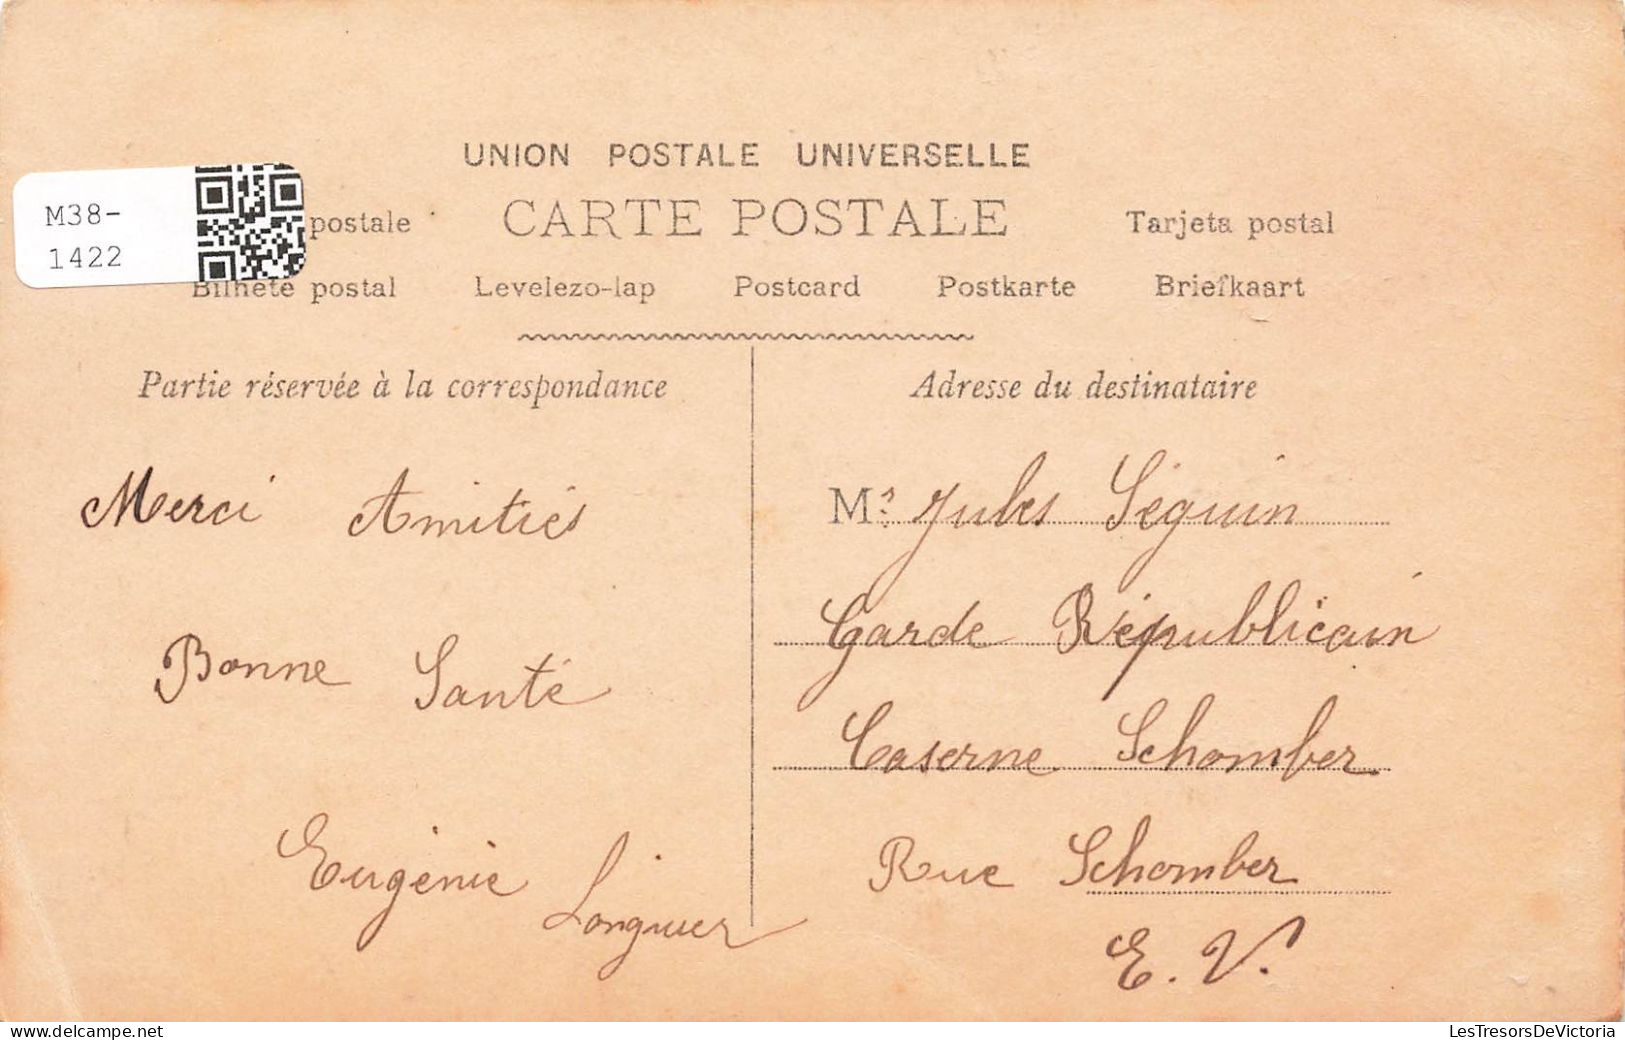 UNION POSTALE UNIVERSELLE
M38-
1422
postale CARTE POSTALE Tarjeta postal
Bilhete postal Levelezo-lap Postcard Postkarte Briefkaart
Partie réservée à la correspondance
Merci Amitiés
Bonne Santé
Eugénie
Adresse du destinataire
Mr Jules Séguin
Garde Républicain
Caserne Schomber
Rue Schomber
E. V.
LesTresorsDeVictoria